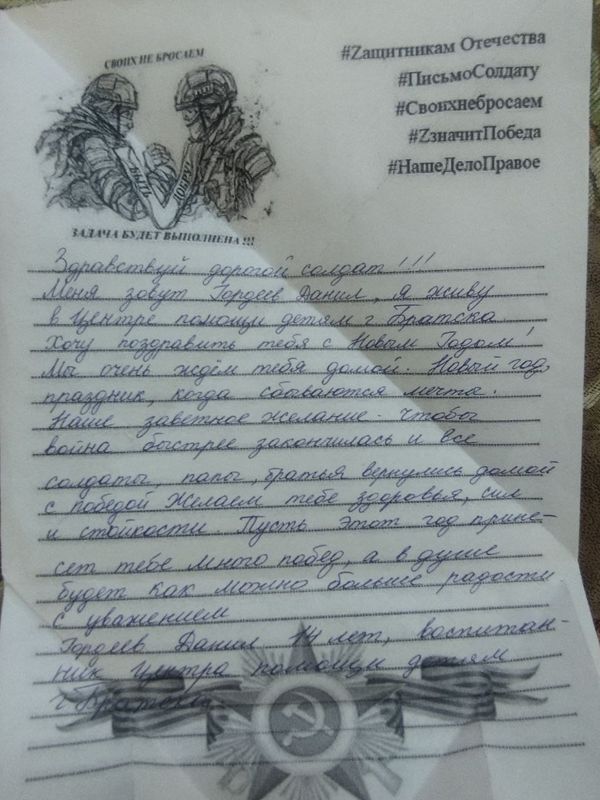 СВОИХ НЕ БРОСАЕМ
#Zащитникам Отечества
#ПисьмоСолдату
#Своихнебросаем
#ZзначитПобеда
#НашеДелоПравое
БЫТЬ ДОБРУ
ЗАДАЧА БУДЕТ ВЫПОЛНЕНА !!!
Здравствуй дорогой солдат!!!
Меня зовут Гордеев Данил, я живу
в Центре помощи детям г Братска.
Хочу поздравить тебя с Новым Годом!
Мы очень ждём тебя домой. Новый год,
праздник, когда сбываются мечты.
Наше заветное желание - чтобы
война быстрее закончилась и все
солдаты, папы, братья вернулись домой
с победой Желаем тебе здоровья, сил
и стойкости. Пусть этот год прине-
сёт тебе много побед, а в душе
будет как можно больше радости
с уважением
Гордеев Данил 14 лет, воспитан-
ник Центра помощи детям
г Братска